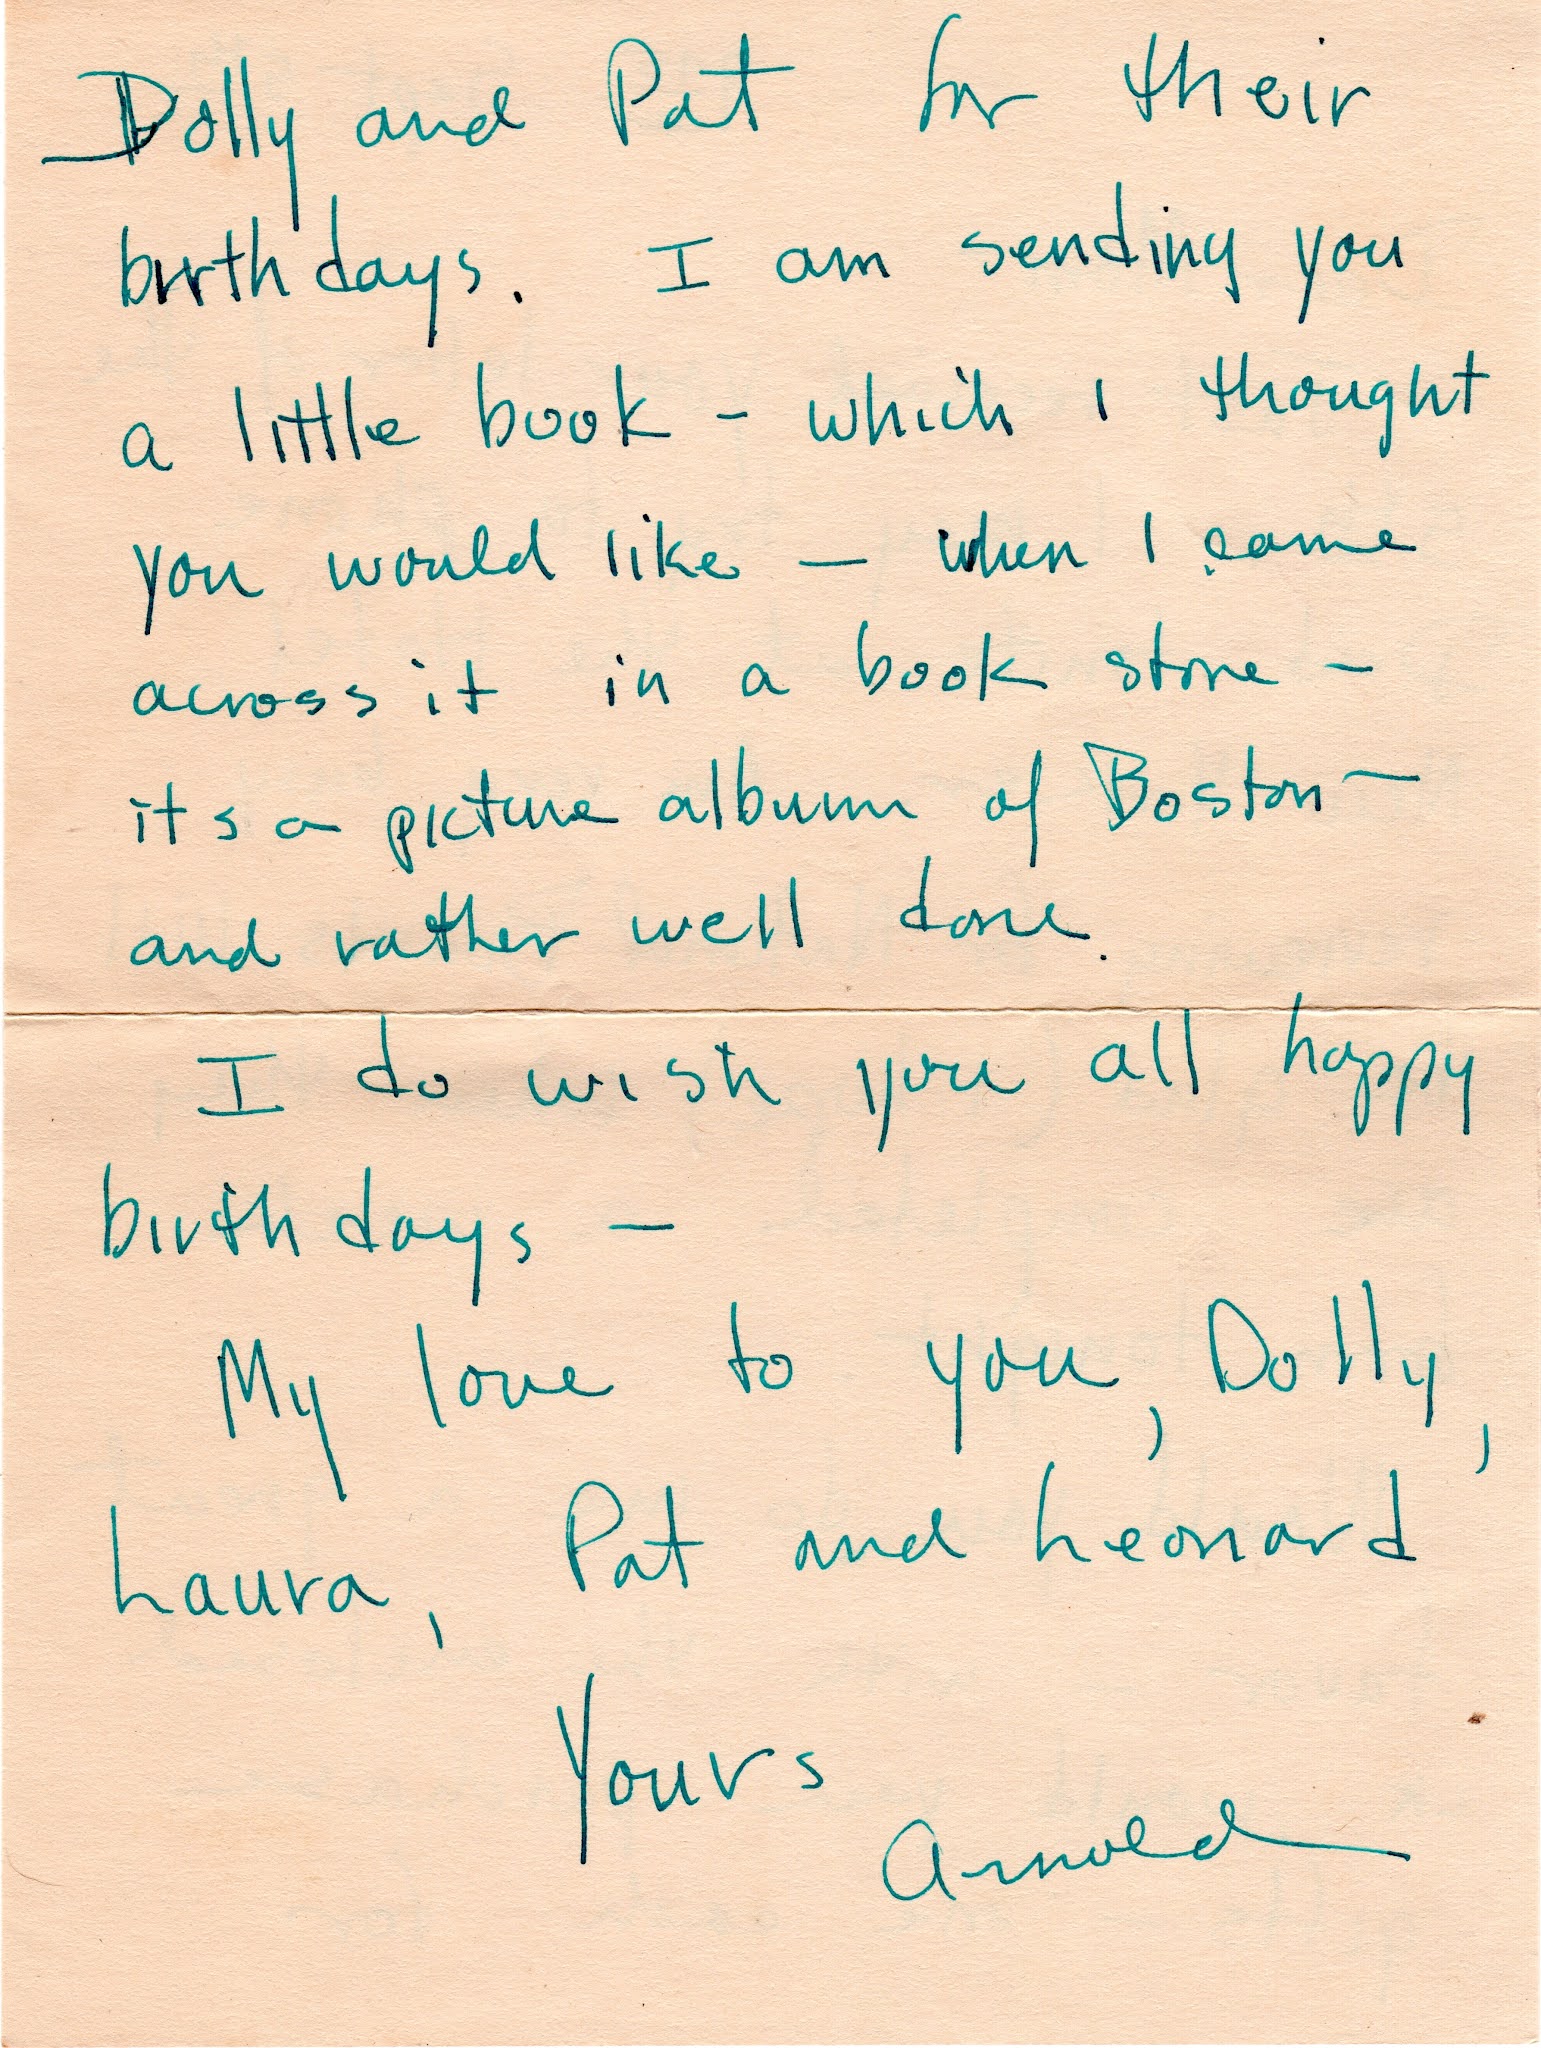 Dolly and Pat for their
birthdays. I am sending you
a little book - which I thought
you would like - when I came
across it in a book store -
its a picture album of Boston -
and rather well done.
I do wish you all happy
birthdays -
My love to you, Dolly,
Laura, Pat and Leonard
Yours
Arnold